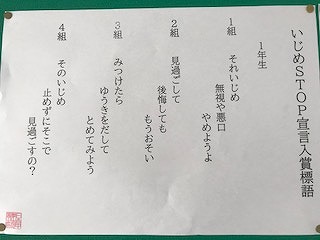 いじめSTOP宣言入賞標語
1年生
1組 それいじめ
無視や悪口
やめようよ
2組 見過ごして
後悔しても
もうおそい
3組 みつけたら
ゆうきをだして
とめてみよう
4組 そのいじめ
止めずにそこで
見過ごすの?